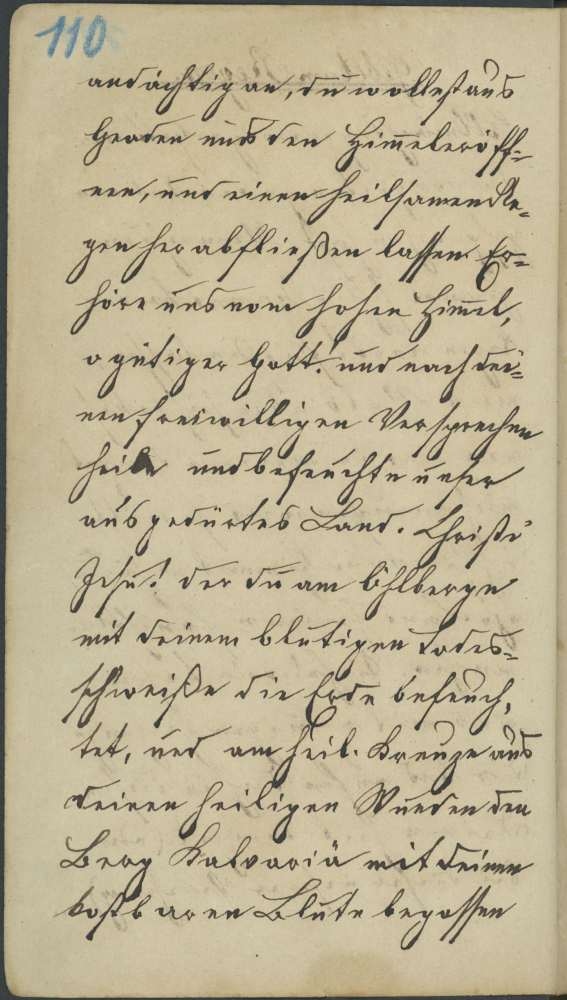 110
andächtig an, du wollest aus
Gnaden uns den Himmel eröff=
nen, und einen heilsamen Re=
gen herabfließen lassen. Er=
höre uns vom hohen Himel,
o gütiger Gott! und nach dei=
nen freiwilligen Versprechen
heile und befeuchte unser
ausgedürtes Land. Christi
Jesu! der du am Öhlberge
mit deinem blutigen Todes=
schweiße die Erde befeuch=
tet, und am heil. Kreuze aus
deinen heiligen Wunden den
Berg Kalvariä mit deinen
kostbaren Blute begossen